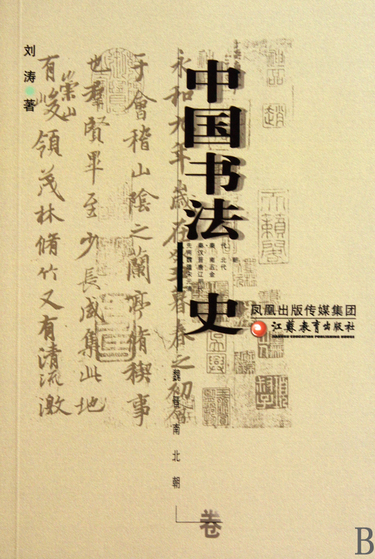 中国书法史
刘涛著
永和九年歲在癸丑暮春之初
于會稽山陰之蘭亭脩稧事
也羣賢畢至少長咸集此地
有崇山峻領茂林脩竹又有清流激
魏晋南北朝
卷
凤凰出版传媒集团
江蘇教育出版社
JIANGSU EDUCATION PUBLISHING HOUSE
B